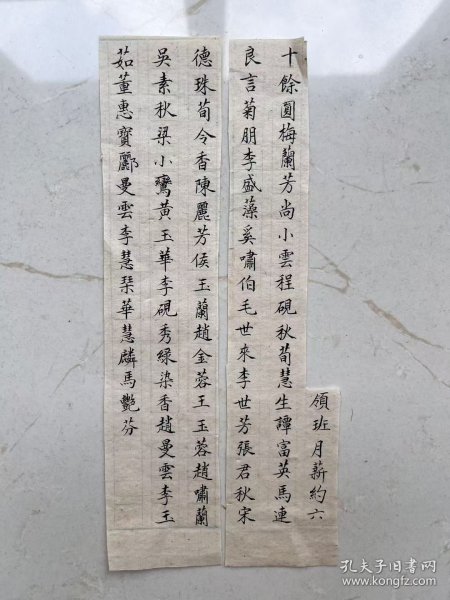 領班月薪約六
十餘圓梅蘭芳尚小雲程硯秋荀慧生譚富英馬連
良言菊朋李盛藻奚嘯伯毛世來李世芳張君秋宋
德珠荀令香陳麗芳侯玉蘭趙金蓉王玉蓉趙嘯蘭
吳素秋梁小鸞黃玉華李硯秀綠染香趙曼雲李玉
茹董惠寶酈曼雲李慧琹華慧麟馬艷芬
孔夫子旧书网
www.kongfz.com